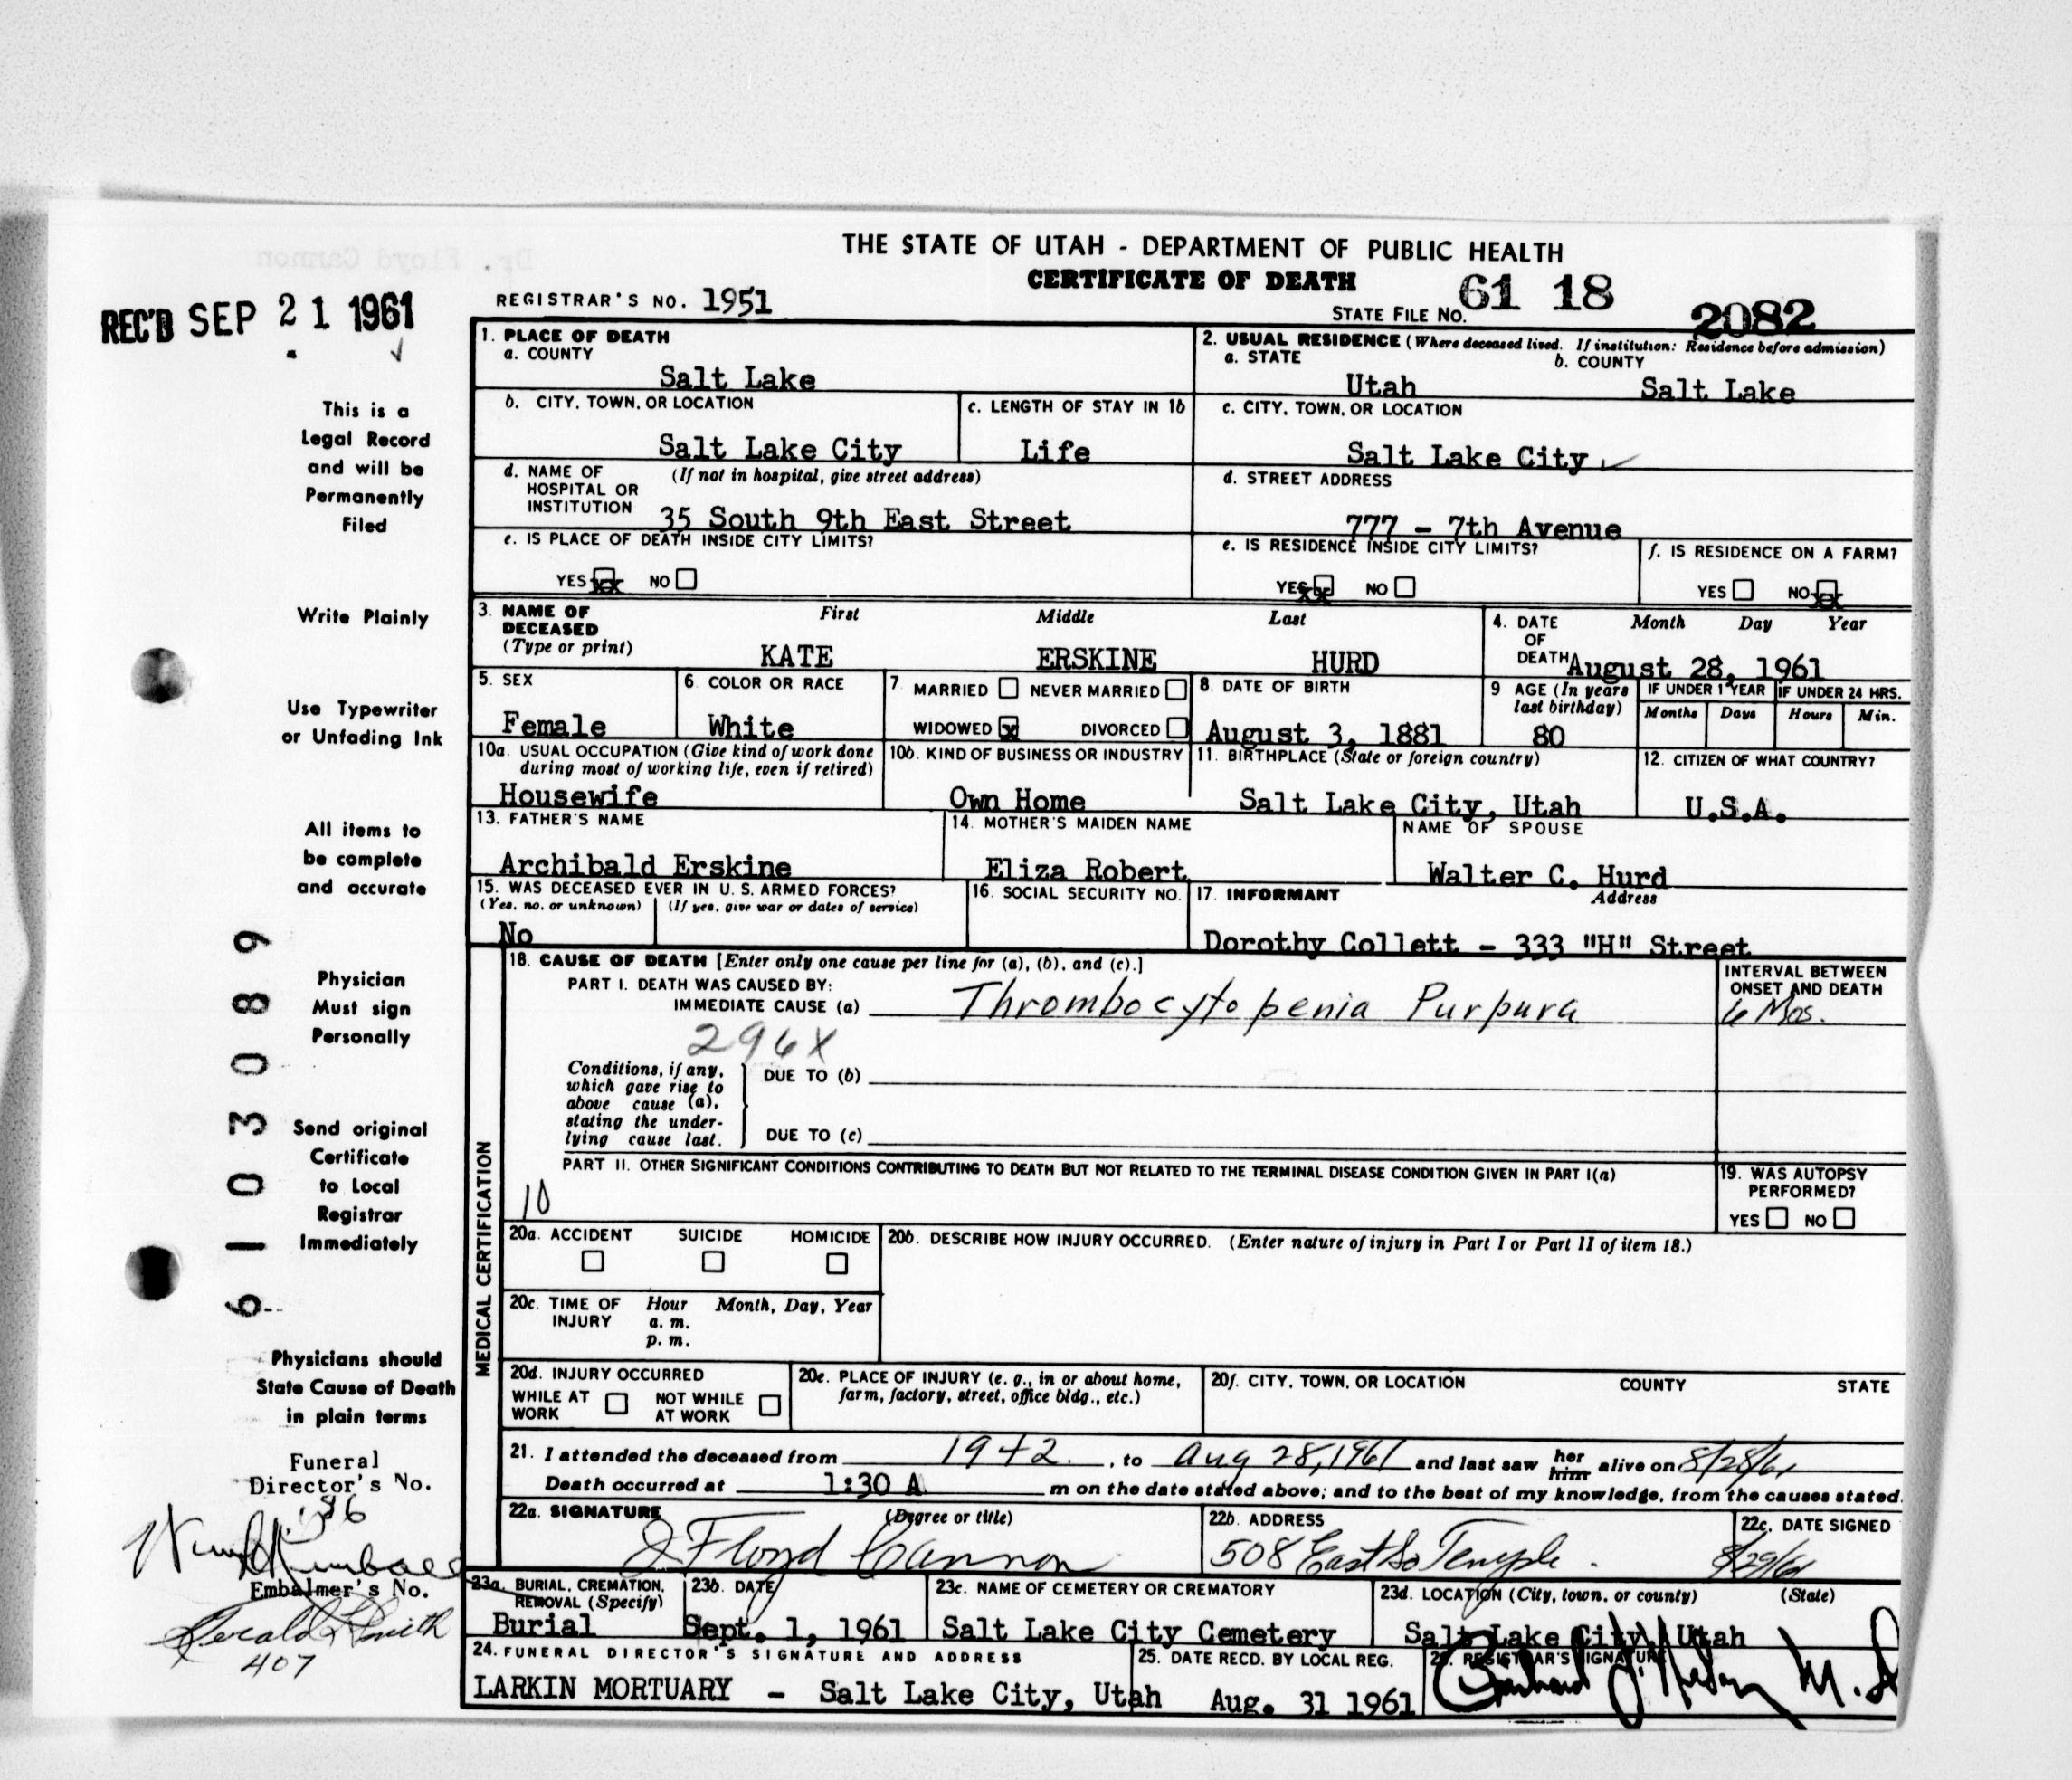 THE STATE OF UTAH - DEPARTMENT OF PUBLIC HEALTH
CERTIFICATE OF DEATH
REC'D SEP 21 1961
REGISTRAR'S NO. 1951
STATE FILE No. 61 18 2082
1. PLACE OF DEATH
a. COUNTY
Salt Lake
2. USUAL RESIDENCE (Where deceased lived. If institution: Residence before admission)
a. STATE b. COUNTY
Utah Salt Lake
b. CITY, TOWN, OR LOCATION
Salt Lake City
c. LENGTH OF STAY IN 1b
Life
c. CITY, TOWN, OR LOCATION
Salt Lake City
d. NAME OF (If not in hospital, give street address)
HOSPITAL OR
INSTITUTION 35 South 9th East Street
d. STREET ADDRESS
777 - 7th Avenue
e. IS PLACE OF DEATH INSIDE CITY LIMITS?
YES xx NO
e. IS RESIDENCE INSIDE CITY LIMITS?
YES xx NO
f. IS RESIDENCE ON A FARM?
YES NO xx
3. NAME OF DECEASED (Type or print)
First Middle Last
KATE ERSKINE HURD
4. DATE OF DEATH Month Day Year
August 28, 1961
5. SEX
Female
6. COLOR OR RACE
White
7. MARRIED NEVER MARRIED
WIDOWED x DIVORCED
8. DATE OF BIRTH
August 3, 1881
9 AGE (In years last birthday)
80
IF UNDER 1 YEAR IF UNDER 24 HRS.
Months Days Hours Min.
10a. USUAL OCCUPATION (Give kind of work done
during most of working life, even if retired)
Housewife
10b. KIND OF BUSINESS OR INDUSTRY
Own Home
11. BIRTHPLACE (State or foreign country)
Salt Lake City, Utah
12. CITIZEN OF WHAT COUNTRY?
U.S.A.
13. FATHER'S NAME
Archibald Erskine
14. MOTHER'S MAIDEN NAME
Eliza Robert
NAME OF SPOUSE
Walter C. Hurd
15. WAS DECEASED EVER IN U. S. ARMED FORCES?
(Yes, no, or unknown) (If yes, give war or dates of service)
No
16. SOCIAL SECURITY NO.
17. INFORMANT Address
Dorothy Collett - 333 "H" Street
MEDICAL CERTIFICATION
18. CAUSE OF DEATH [Enter only one cause per line for (a), (b), and (c).]
PART I. DEATH WAS CAUSED BY:
IMMEDIATE CAUSE (a) Thrombocytopenia Purpura
INTERVAL BETWEEN
ONSET AND DEATH
6 Mos.
296X
Conditions, if any,
which gave rise to
above cause (a),
stating the under-
lying cause last.
DUE TO (b)
DUE TO (c)
PART II. OTHER SIGNIFICANT CONDITIONS CONTRIBUTING TO DEATH BUT NOT RELATED TO THE TERMINAL DISEASE CONDITION GIVEN IN PART I(a)
10
19. WAS AUTOPSY
PERFORMED?
YES NO
20a. ACCIDENT SUICIDE HOMICIDE
20b. DESCRIBE HOW INJURY OCCURRED. (Enter nature of injury in Part I or Part II of item 18.)
20c. TIME OF INJURY Hour Month, Day, Year
a. m.
p. m.
20d. INJURY OCCURRED
WHILE AT WORK NOT WHILE AT WORK
20e. PLACE OF INJURY (e. g., in or about home,
farm, factory, street, office bldg., etc.)
20f. CITY, TOWN, OR LOCATION COUNTY STATE
21. I attended the deceased from 1942, to Aug 28, 1961 and last saw her him alive on 8/28/61
Death occurred at 1:30 A m on the date stated above; and to the best of my knowledge, from the causes stated.
22a. SIGNATURE (Degree or title)
J Floyd Cannon
22b. ADDRESS
508 East So Temple.
22c. DATE SIGNED
8/29/61
23a. BURIAL, CREMATION,
REMOVAL (Specify)
Burial
23b. DATE
Sept. 1, 1961
23c. NAME OF CEMETERY OR CREMATORY
Salt Lake City Cemetery
23d. LOCATION (City, town, or county) (State)
Salt Lake City, Utah
24. FUNERAL DIRECTOR'S SIGNATURE AND ADDRESS
LARKIN MORTUARY - Salt Lake City, Utah
25. DATE RECD. BY LOCAL REG.
Aug. 31 1961
26. REGISTRAR'S SIGNATURE
M.D
This is a
Legal Record
and will be
Permanently
Filed
Write Plainly
Use Typewriter
or Unfading Ink
All items to
be complete
and accurate
Physician
Must sign
Personally
Send original
Certificate
to Local
Registrar
Immediately
Physicians should
State Cause of Death
in plain terms
6103089
Funeral
Director's No.
186
Kimball
Embalmer's No.
Gerald Smith
407
Dr. Floyd Cannon